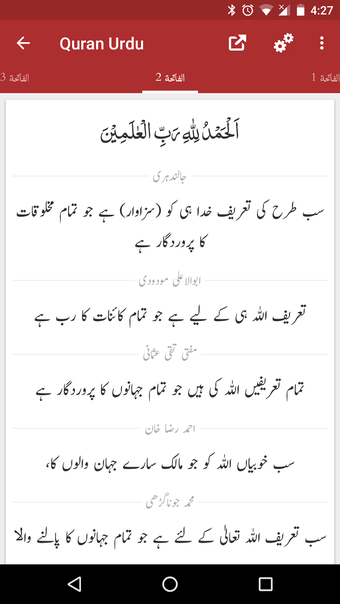 4:27
Quran Urdu
الفاتحة 1
الفاتحة 2
الفاتحة 3
اَلْحَمْدُ لِلّٰهِ رَبِّ الْعٰلَمِيْنَ
جالندہری
سب طرح کی تعریف خدا ہی کو (سزاوار) ہے جو تمام مخلوقات
کا پروردگار ہے
ابوالاعلی مودودی
تعریف اللہ ہی کے لیے ہے جو تمام کائنات کا رب ہے
مفتی تقی عثمانی
تمام تعریفیں اللہ کی ہیں جو تمام جہانوں کا پروردگار ہے
احمد رضا خان
سب خوبیاں اللہ کو جو مالک سارے جہان والوں کا،
محمد جوناگڑھی
سب تعریف اللہ تعالیٰ کے لئے ہے جو تمام جہانوں کا پالنے والا